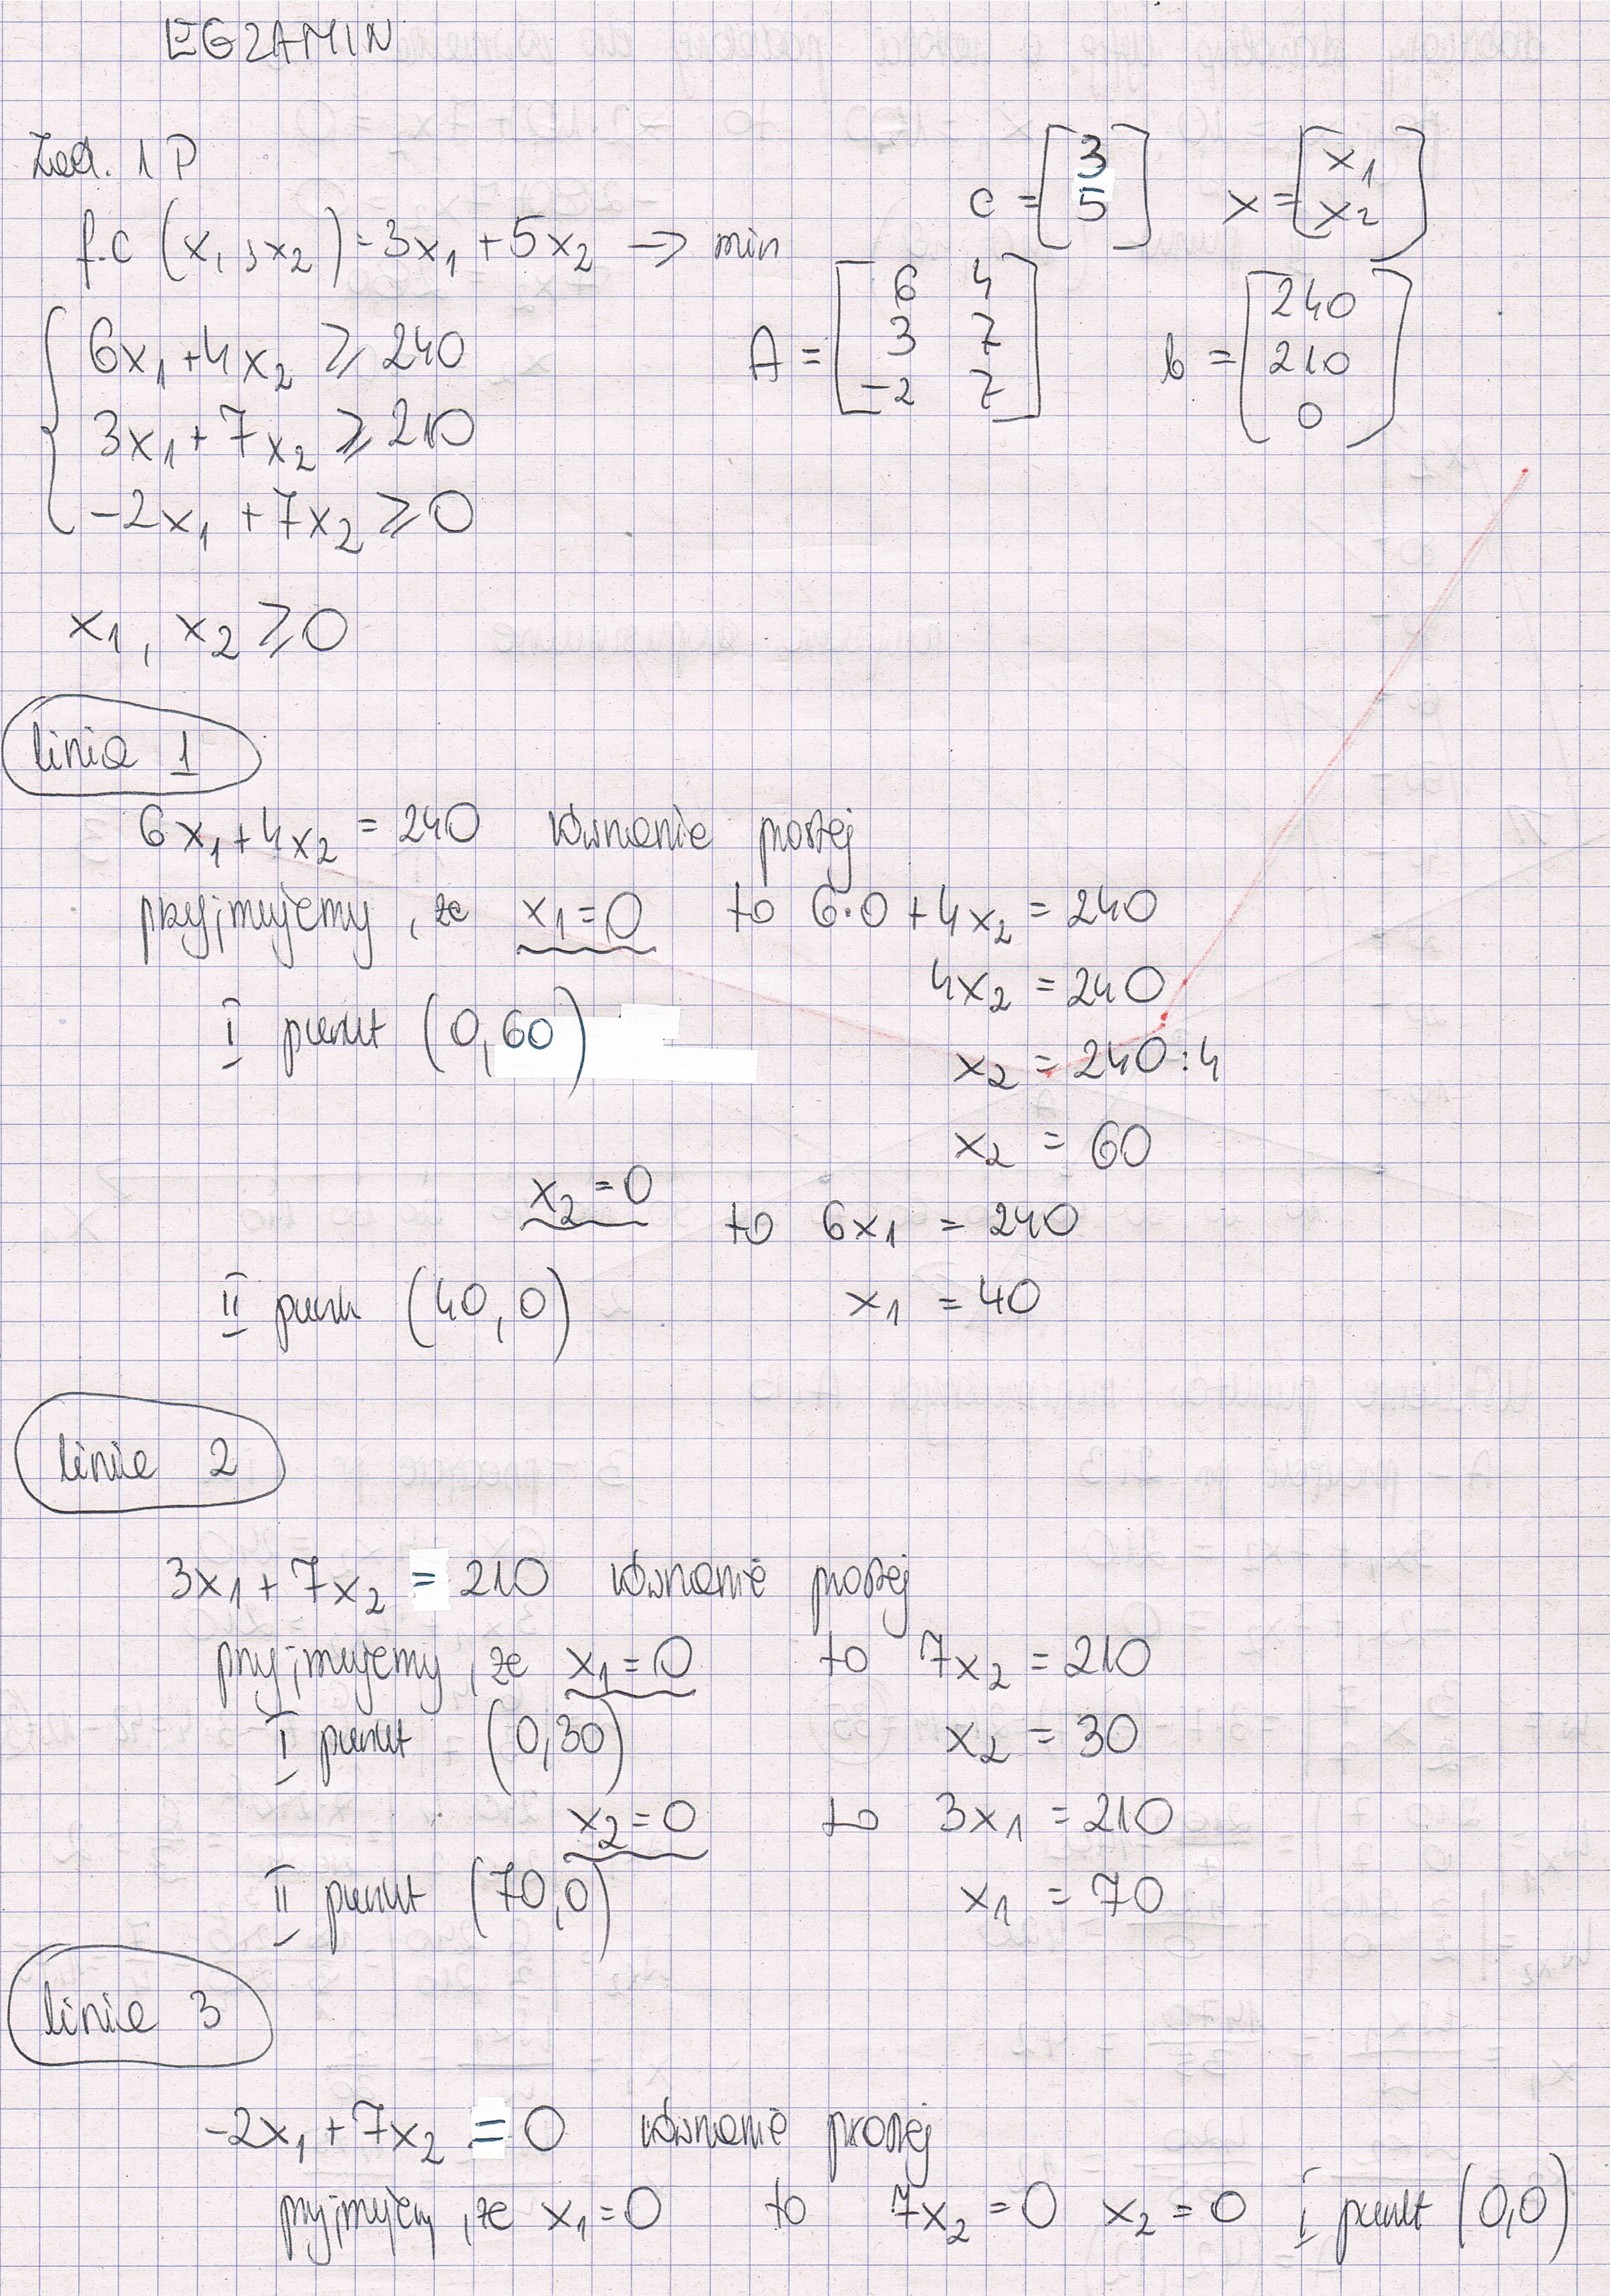 EGZAMIN
Zad. 1 P
f.c (x1, x2) = 3x1 + 5x2 → min
c = [3 5] x = [x1 x2]
6x1 + 4x2 ≥ 240
3x1 + 7x2 ≥ 210
-2x1 + 7x2 ≥ 0
A = [6 4 3 7 -2 7] b = [240 210 0]
x1, x2 ≥ 0
linia 1
6x1 + 4x2 = 240 równanie prostej
przyjmujemy, że x1 = 0 to 6·0 + 4x2 = 240
4x2 = 240
I punkt (0,60)
x2 = 240:4
x2 = 60
x2 = 0 to 6x1 = 240
II punk (40,0) x1 = 40
linia 2
3x1 + 7x2 = 210 równanie prostej
przyjmujemy, że x1 = 0 to 7x2 = 210
I punkt (0,30) x2 = 30
x2 = 0 to 3x1 = 210
II punkt (70,0) x1 = 70
linia 3
-2x1 + 7x2 = 0 równanie prostej
przyjmujemy, że x1 = 0 to 7x2 = 0 x2 = 0 I punkt (0,0)